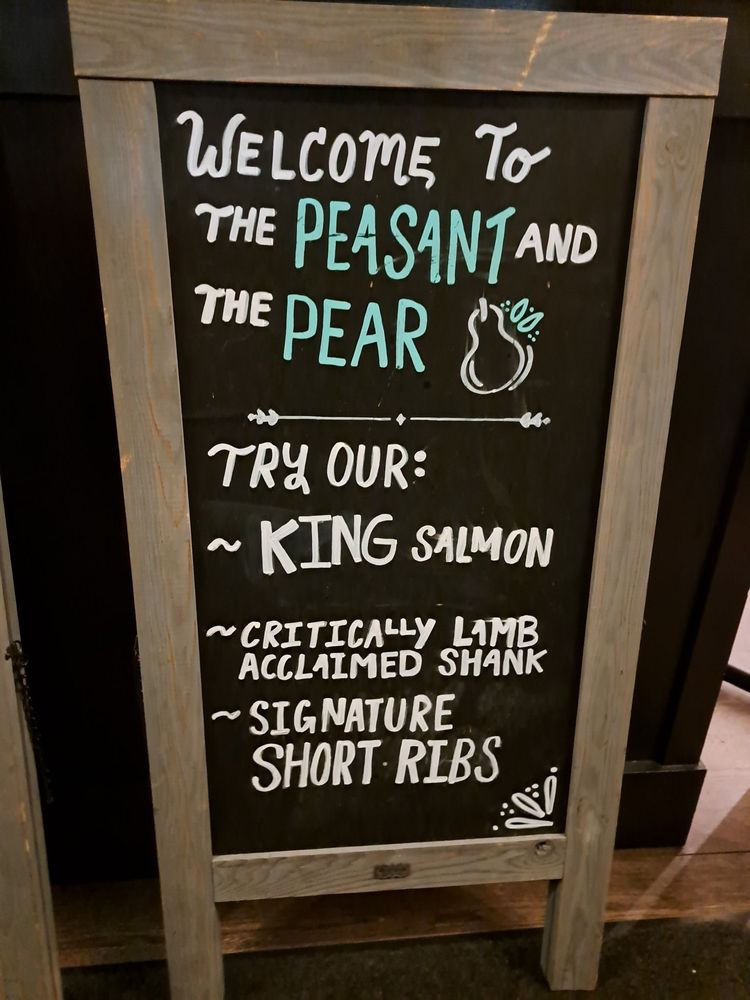 WELCOME TO
THE PEASANT AND
THE PEAR
TRY OUR:
~ KING SALMON
~ CRITICALLY LAMB
ACCLAIMED SHANK
~ SIGNATURE
SHORT RIBS